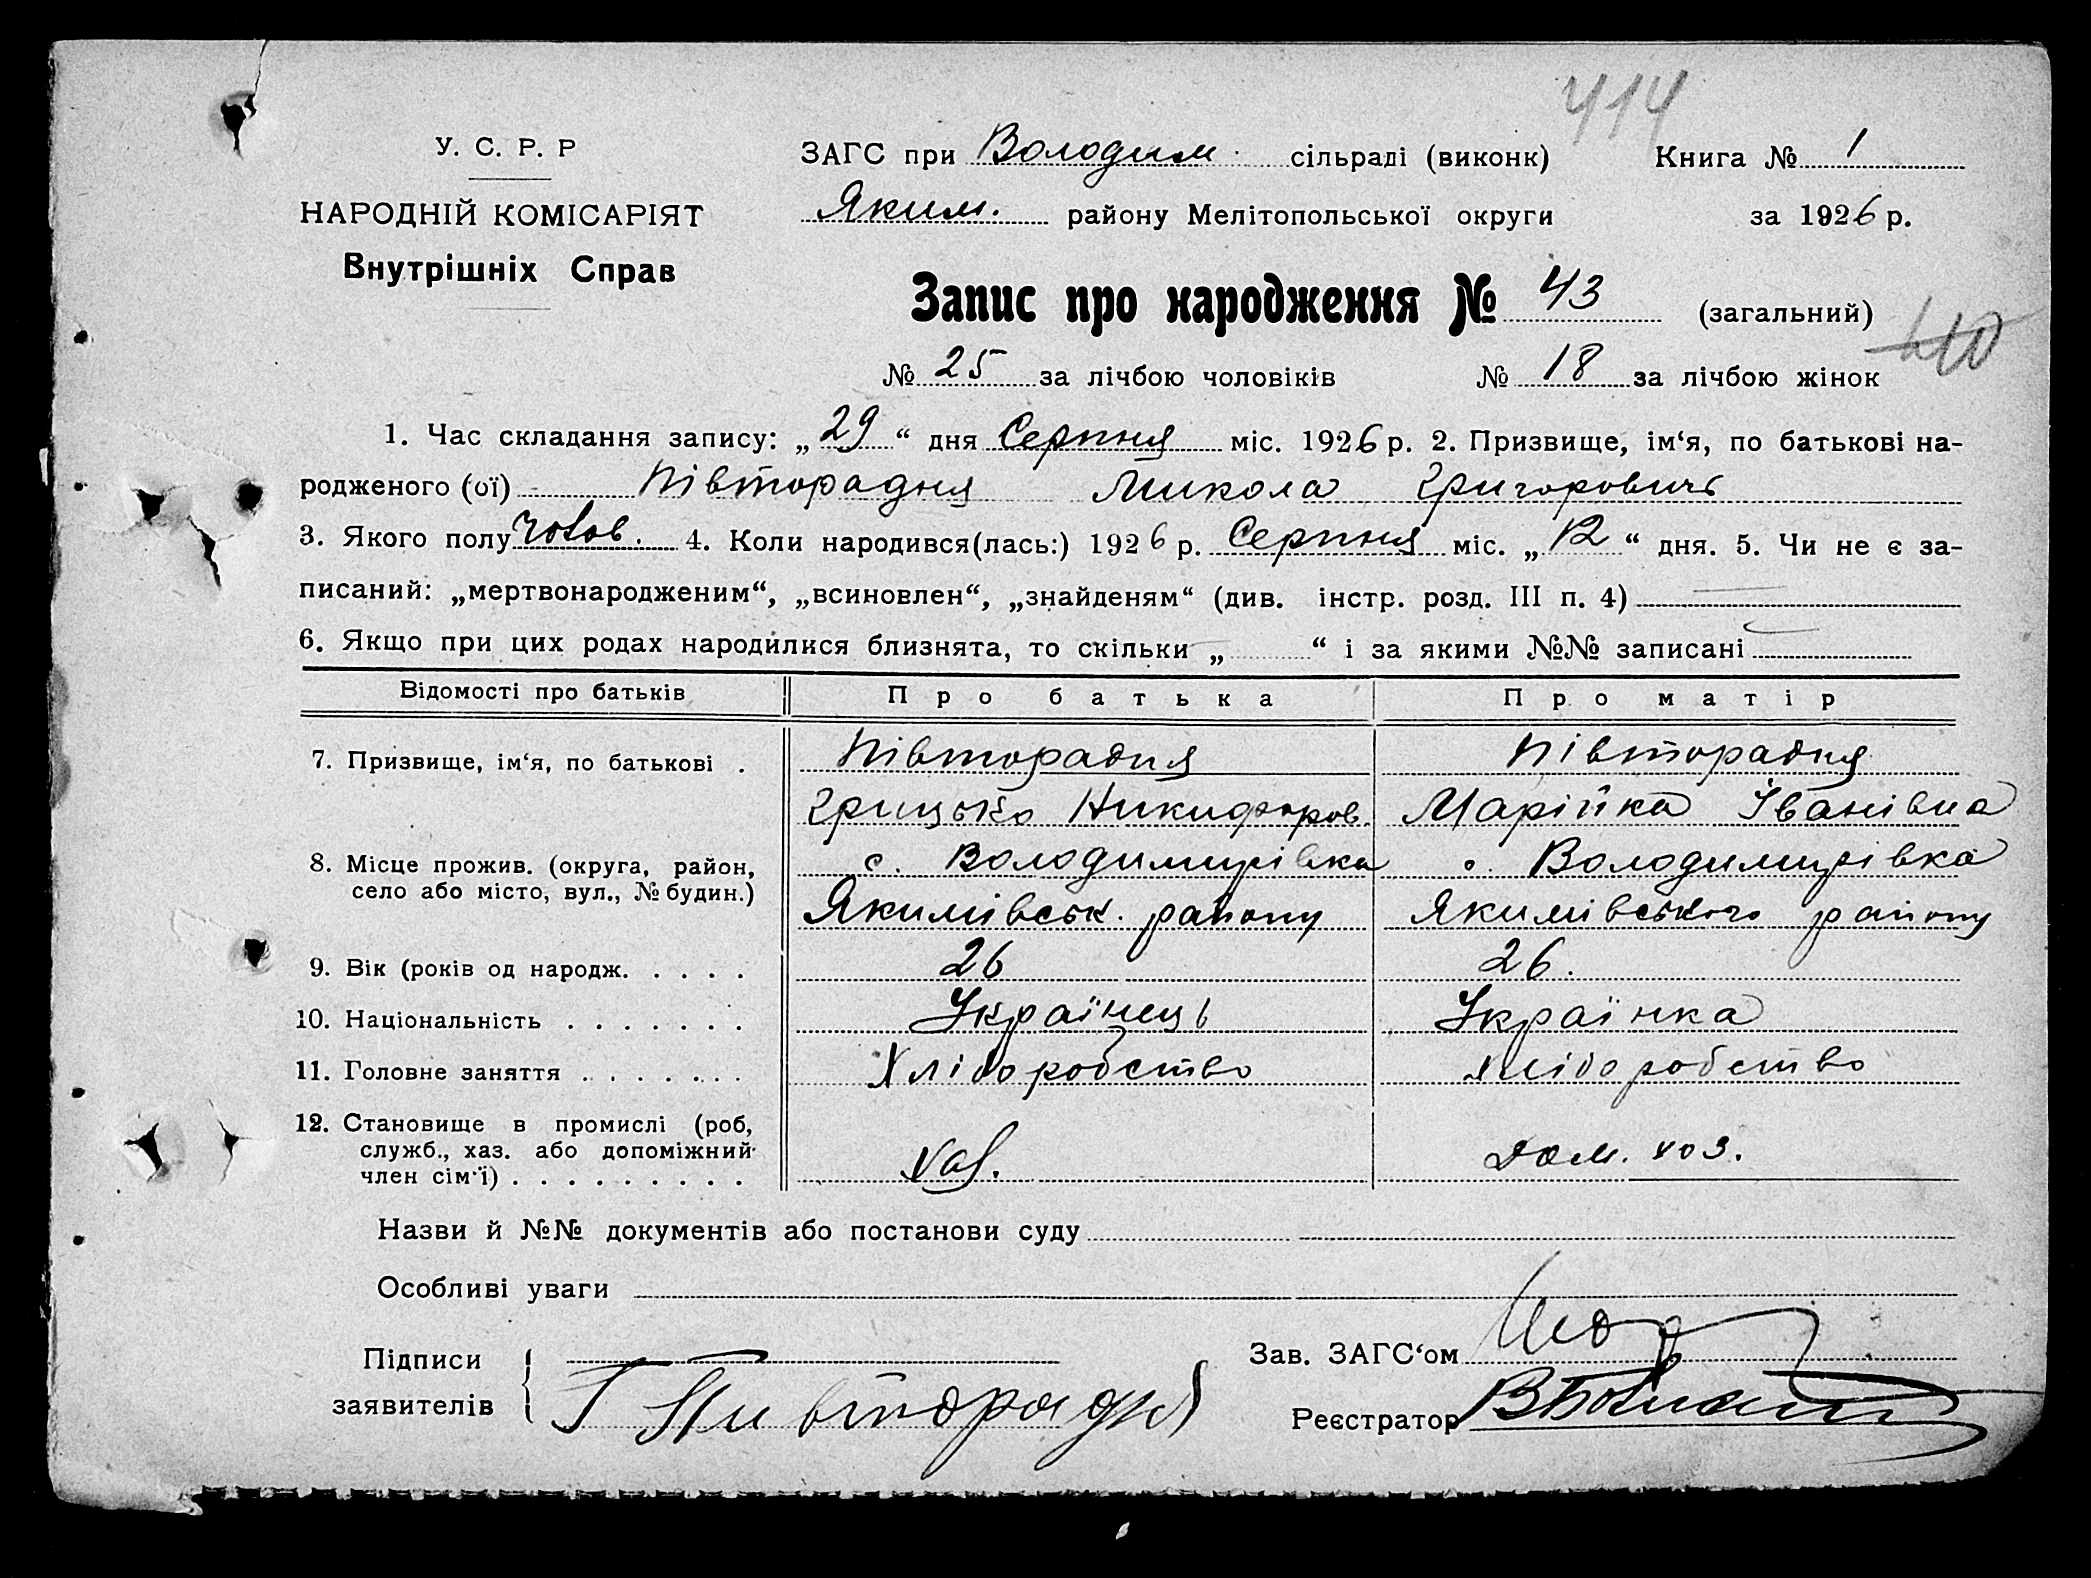 414
У. С. Р. Р
ЗАГС при Володим. сільраді (виконк) Книга № 1
НАРОДНІЙ КОМІСАРІЯТ
Яким. району Мелітопольської округи за 1926 р.
Внутрішніх Справ
Запис про народження № 43 (загальний)
410
№ 25 за лічбою чоловіків № 18 за лічбою жінок
1. Час складання запису: „29“ дня Серпня міс. 1926 р. 2. Призвище, ім‘я, по батькові на-
родженого (ої) Півторадня Микола Григоровичь
3. Якого полу чолов. 4. Коли народився(лась:) 1926 р. Серпня міс. „12“ дня. 5. Чи не є за-
писаний: „мертвонародженим“, „всиновлен“, „знайденям“ (див. інстр. розд. III п. 4)
6. Якщо при цих родах народилися близнята, то скільки „ “ і за якими №№ записані
Відомості про батьків Про батька Про матір
7. Призвище, ім‘я, по батькові . Півторадня Півторадня
Грицько Никифоров. Марійка Іванівна
8. Місце прожив. (округа, район, с. Володимирівка с. Володимирівка
село або місто, вул., № будин.) Якимівськ. району Якимівського району
9. Вік (років од народж. . . . . 26 26.
10. Національність . . . . . . . Українець Українка
11. Головне заняття . . . . . . . Хліборобство хліборобство
12. Становище в промислі (роб,
служб., хаз. або допоміжний
член сім‘ї) . . . . . . . . . Хаз. дом. хоз.
Назви й №№ документів або постанови суду
Особливі уваги
Підписи Зав. ЗАГС‘ом
заявителів Г Пивторадня Реєстратор